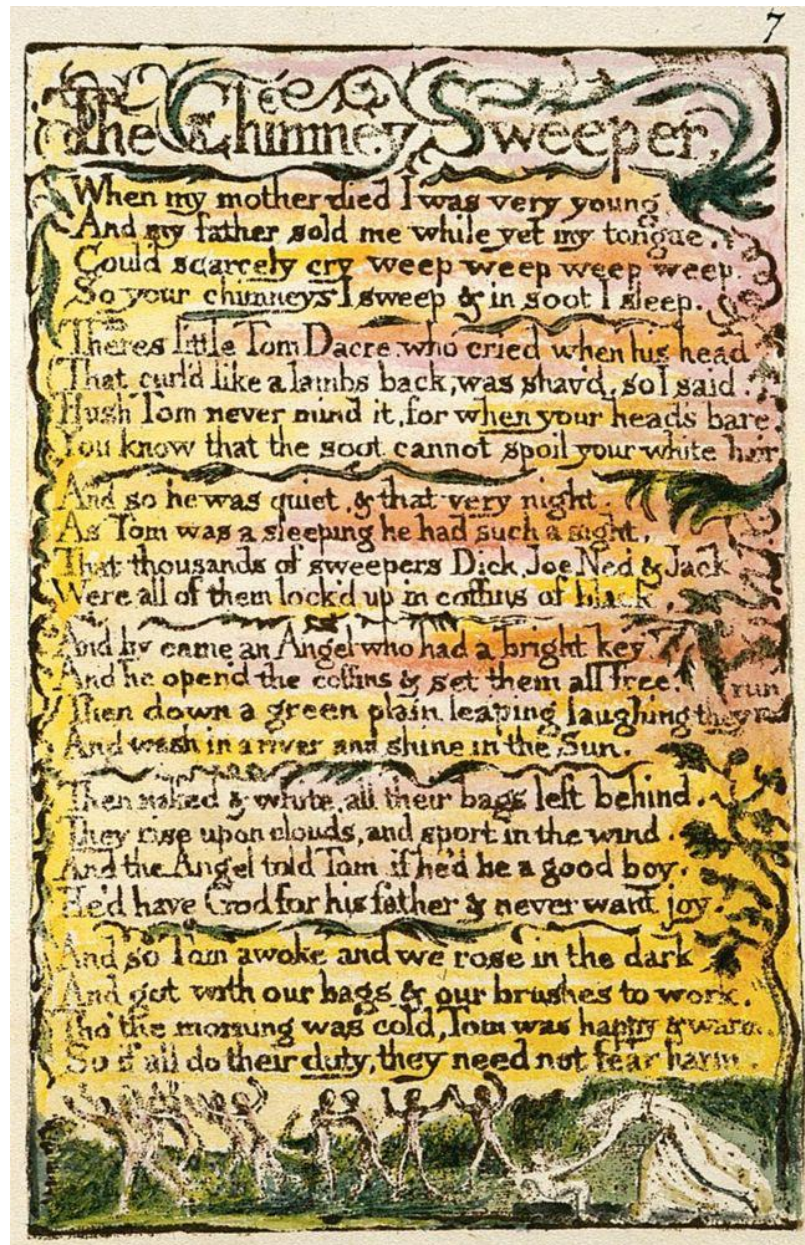 7
The Chimney Sweeper,
When my mother died I was very young,
And my father sold me while yet my tongue,
Could scarcely cry weep weep weep weep.
So your chimneys I sweep & in soot I sleep.
Theres little Tom Dacre, who cried when his head
That curl'd like a lambs back, was shav'd, so I said.
Hush Tom never mind it, for when your heads bare,
You know that the soot cannot spoil your white hair
And so he was quiet, & that very night.
As Tom was a sleeping he had such a sight,
That thousands of sweepers Dick, Joe, Ned & Jack
Were all of them lock'd up in coffins of black,
And by came an Angel who had a bright key
And he open'd the coffins & set them all free.
Then down a green plain leaping laughing they run
And wash in a river and shine in the Sun.
Then naked & white, all their bags left behind.
They rise upon clouds, and sport in the wind.
And the Angel told Tom, if he'd be a good boy,
He'd have God for his father & never want joy.
And so Tom awoke and we rose in the dark
And got with our bags & our brushes to work.
Tho' the morning was cold, Tom was happy & warm.
So if all do their duty, they need not fear harm.